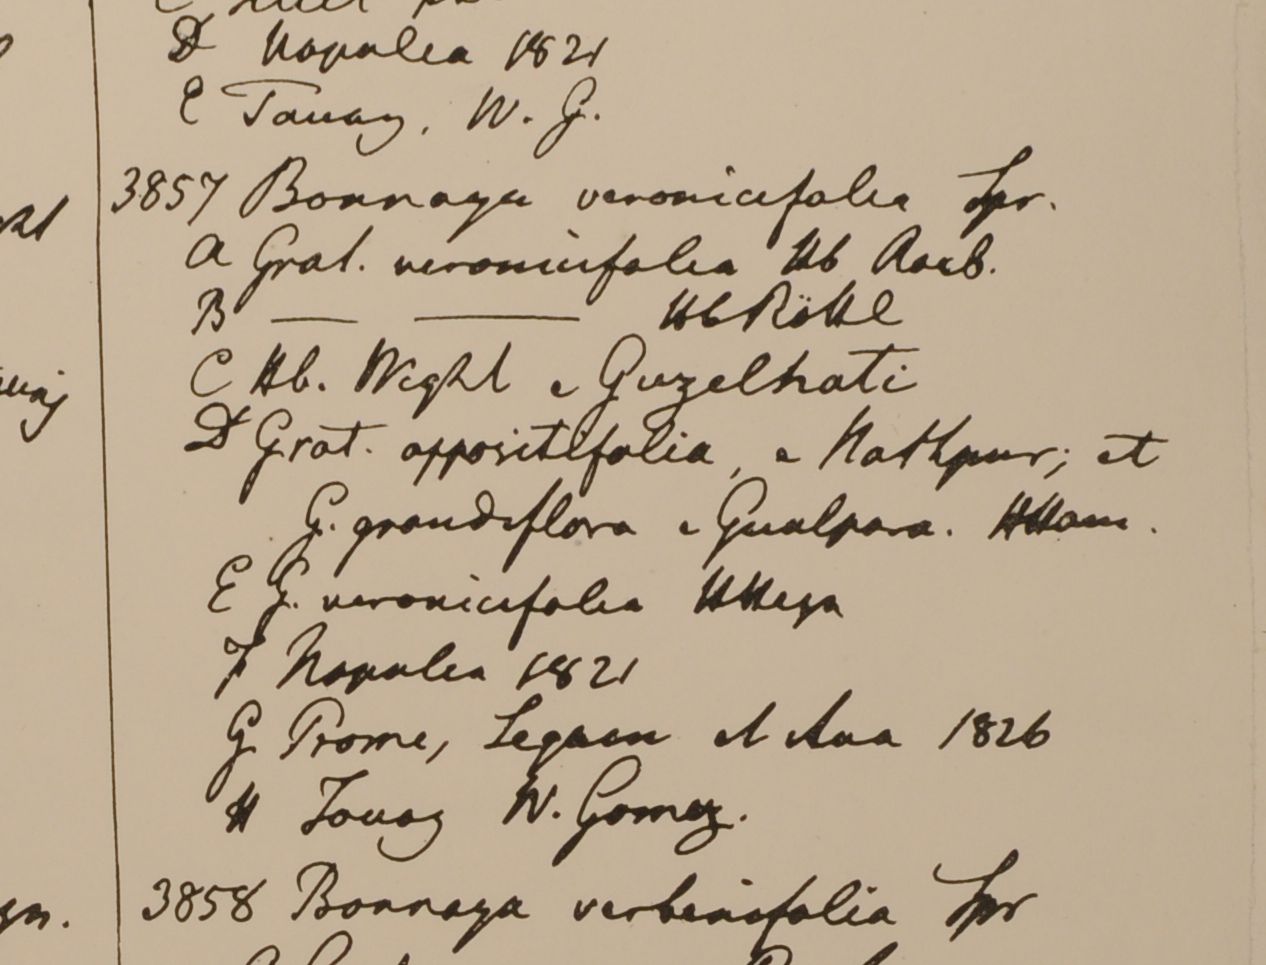 D Napalea 1821
E Tavay, W. G.
3857 Bonnaya veronicifolia Spr.
A Grat. veronicifolia Hb Roxb.
B —— ——— Hb Röttl
C Hb. Wight e Guzelhati
D Grat. oppositifolia, e Nathpur; et
G. grandiflora e Gualpara. HHam.
E G. veronicifolia HHeyn
F Napalea 1821
G Prome, Segaen et Ava 1826
H Tavay W. Gomez.
3858 Bonnaya verbenifolia Spr